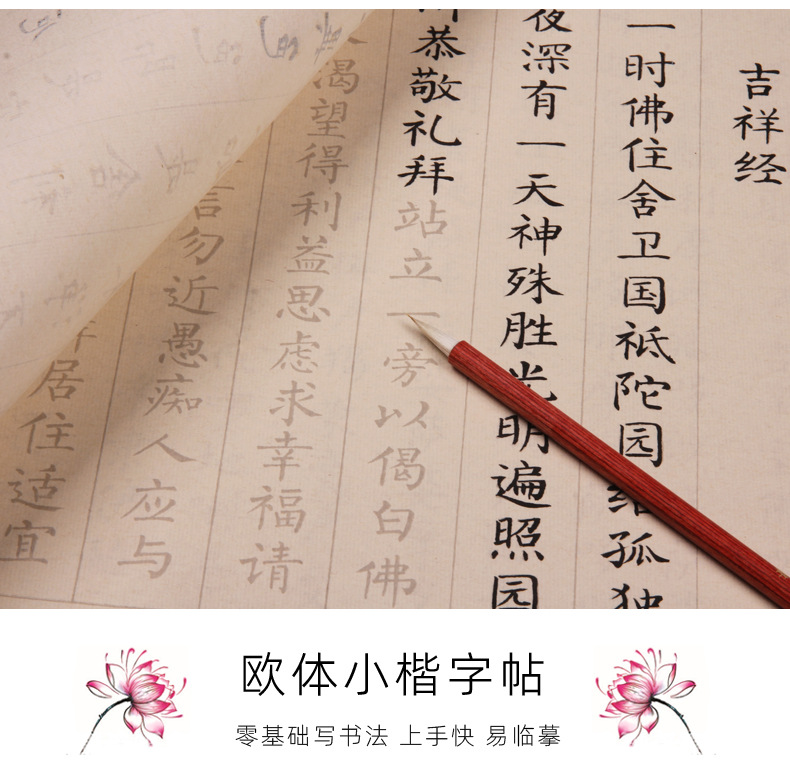 吉祥经
一时佛住舍卫国祗陀园给孤独
夜深有一天神殊胜光明遍照园
恭敬礼拜站立一旁以偈白佛
渴望得利益思虑求幸福请
言勿近愚痴人应与
居住适宜
欧体小楷字帖
零基础写书法 上手快 易临摹